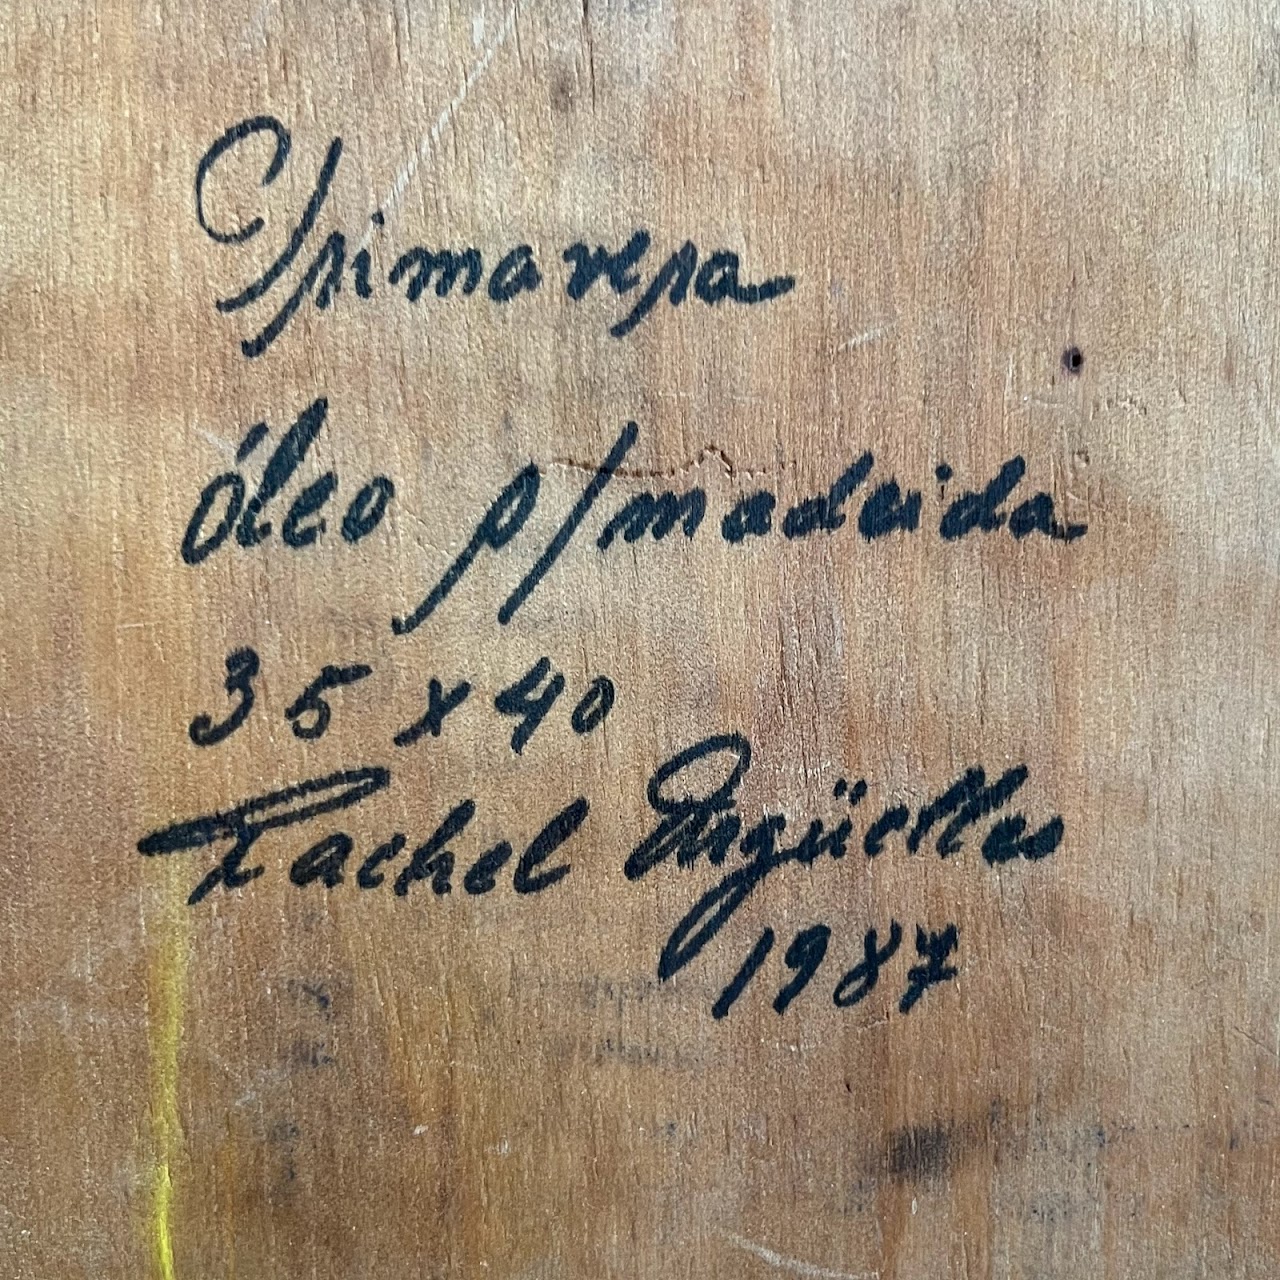 Primavera
Óleo p/madeida
35 x 40
Rachel Argüelles
1987